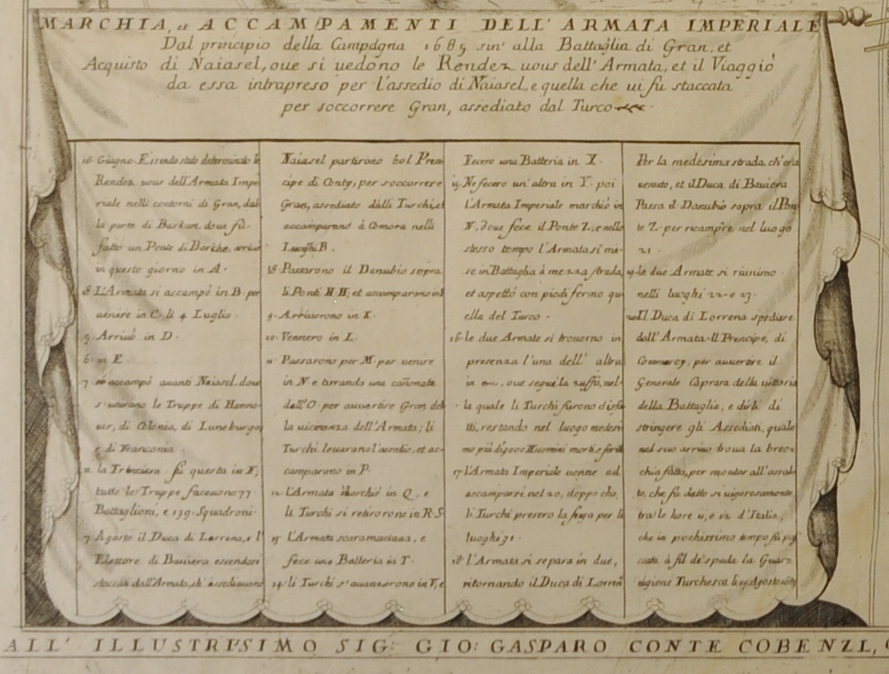 MARCHIA, et ACCAMPAMENTI DELL' ARMATA IMPERIALE
Dal principio della Campagna 1685 sin' alla Battaglia di Gran, et
Acquisto di Naiasel, oue si uedono le Rendez uous dell' Armata, et il Viaggio
da essa intrapreso per l'assedio di Naiasel, e quella che ui fù staccata
per soccorrere Gran, assediato dal Turco
16 Giugno Essendo stato determinato il
Rendez uous dell' Armata Impe
riale nelli contorni di Gran, dal
la parte di Barkan, doue fù
fatto un Ponte di Barche, arriuò
in questo giorno in A.
L'Armata si accampò in B. per
uenire in C. li 4 Luglio.
5 Arriuò in D.
6 in E
7 accampò auanti Naiasel, doue
s' unirono le Truppe di Hanno
uer, di Colonia, di Luneburgo,
e di Franconia.
la Trinciera fù questa in F;
tutte le Truppe faceuono 77
Battaglioni, e 139 Squadroni
7 Agosto il Duca di Lorrena, e l'
Elettore di Bauiera essendosi
staccati dall' Armata, ch' assediauano
Naiasel partirono col Pren
cipe di Conty, per soccorrere
Gran, assediato dalli Turchi, et
accamparono à Comora nelli
Luoghi B.
18 Passarono il Danubio sopra
li Ponti H H, et accamparono in I
9. Arriuorono in K.
10. Vennero in L
11 Passarono per M. per uenire
in N. e tirrando una cañonata
dall' O. per auuertire Gran del
la uicinanza dell' Armata; li
Turchi leuarano l'assedio, et ac
camparono in P.
12 L'Armata marchiò in Q, e
li Turchi si retirorono in R.S
15 L'Armata scaramucciaua, e
fece una Batteria in T.
14 li Turchi s' auanzarono in V, e
Fecero una Batteria in X.
15 Ne fecero un' altra in Y. poi
l'Armata Imperiale marchiò in
N, doue fece il Ponte Z, e nello
stesso tempo l'Armata si mi-
se in Battaglia à mezza strada,
et aspettò con piedi fermo qu
ella del Turco.
16 le due Armate si trouorno in
presenza l'una dell' altra
in oue segui la zuffa, nel-
la quale li Turchi furono disfa
tti, restando nel luogo medesi
mo più di Huomini morti, e feriti
17 L'Armata Imperiale uenne ad
accamparsi nel 20, doppo che
li Turchi presero la fuga per li
luoghi 91.
18 l'Armata si separa in due,
ritornando il Duca di Lorreñ
Per la medesima strada, ch' era
uenuto, et il Duca di Bauiera
Passa il Danubio sopra il Pon
te Z. per ricampre nel luogo
21.
19 le due Armate si riunirno
nelli luoghi 22 e 23.
20 Il Duca di Lorrena spediue
dall' Armata Il Prencipe, di
Commercy, per auuertire il
Generale Caprara della uittoria
della Battaglia, e dirli di
stringere gli Assediati, quale
nel suo arriuo troua la brec-
chia fatta, per montar all' assal
to, che fù datto si uigorosamente
tra le hore 11, e 12 d'Italia,
che in pochissimo tempo fù pi
à fil de' spada la Guar-
nigione Turchesca li 19 Agosto 1685
ALL' ILLUSTRISIMO SIG: GIO: GASPARO CONTE COBENZL,